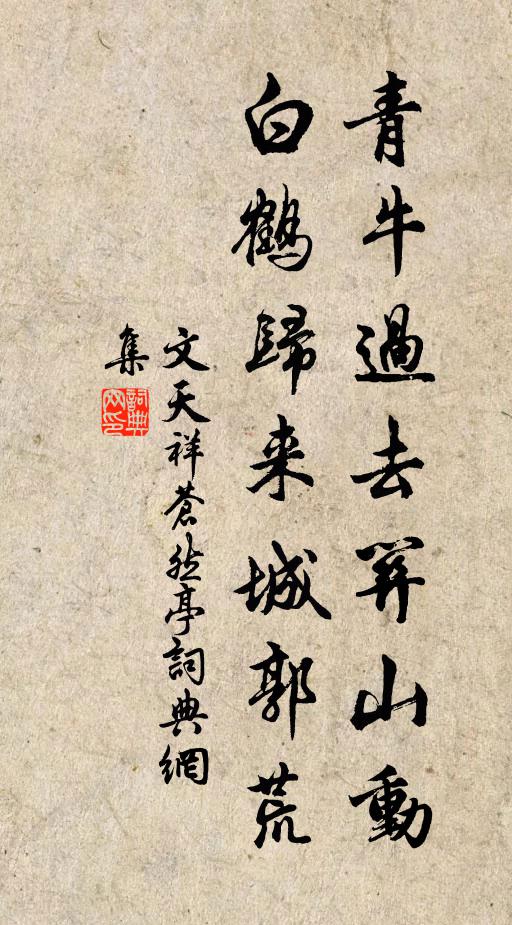 青牛過去關山動
白鶴歸来城郭荒
文天祥蒼然亭詞典網
集
詞典網印